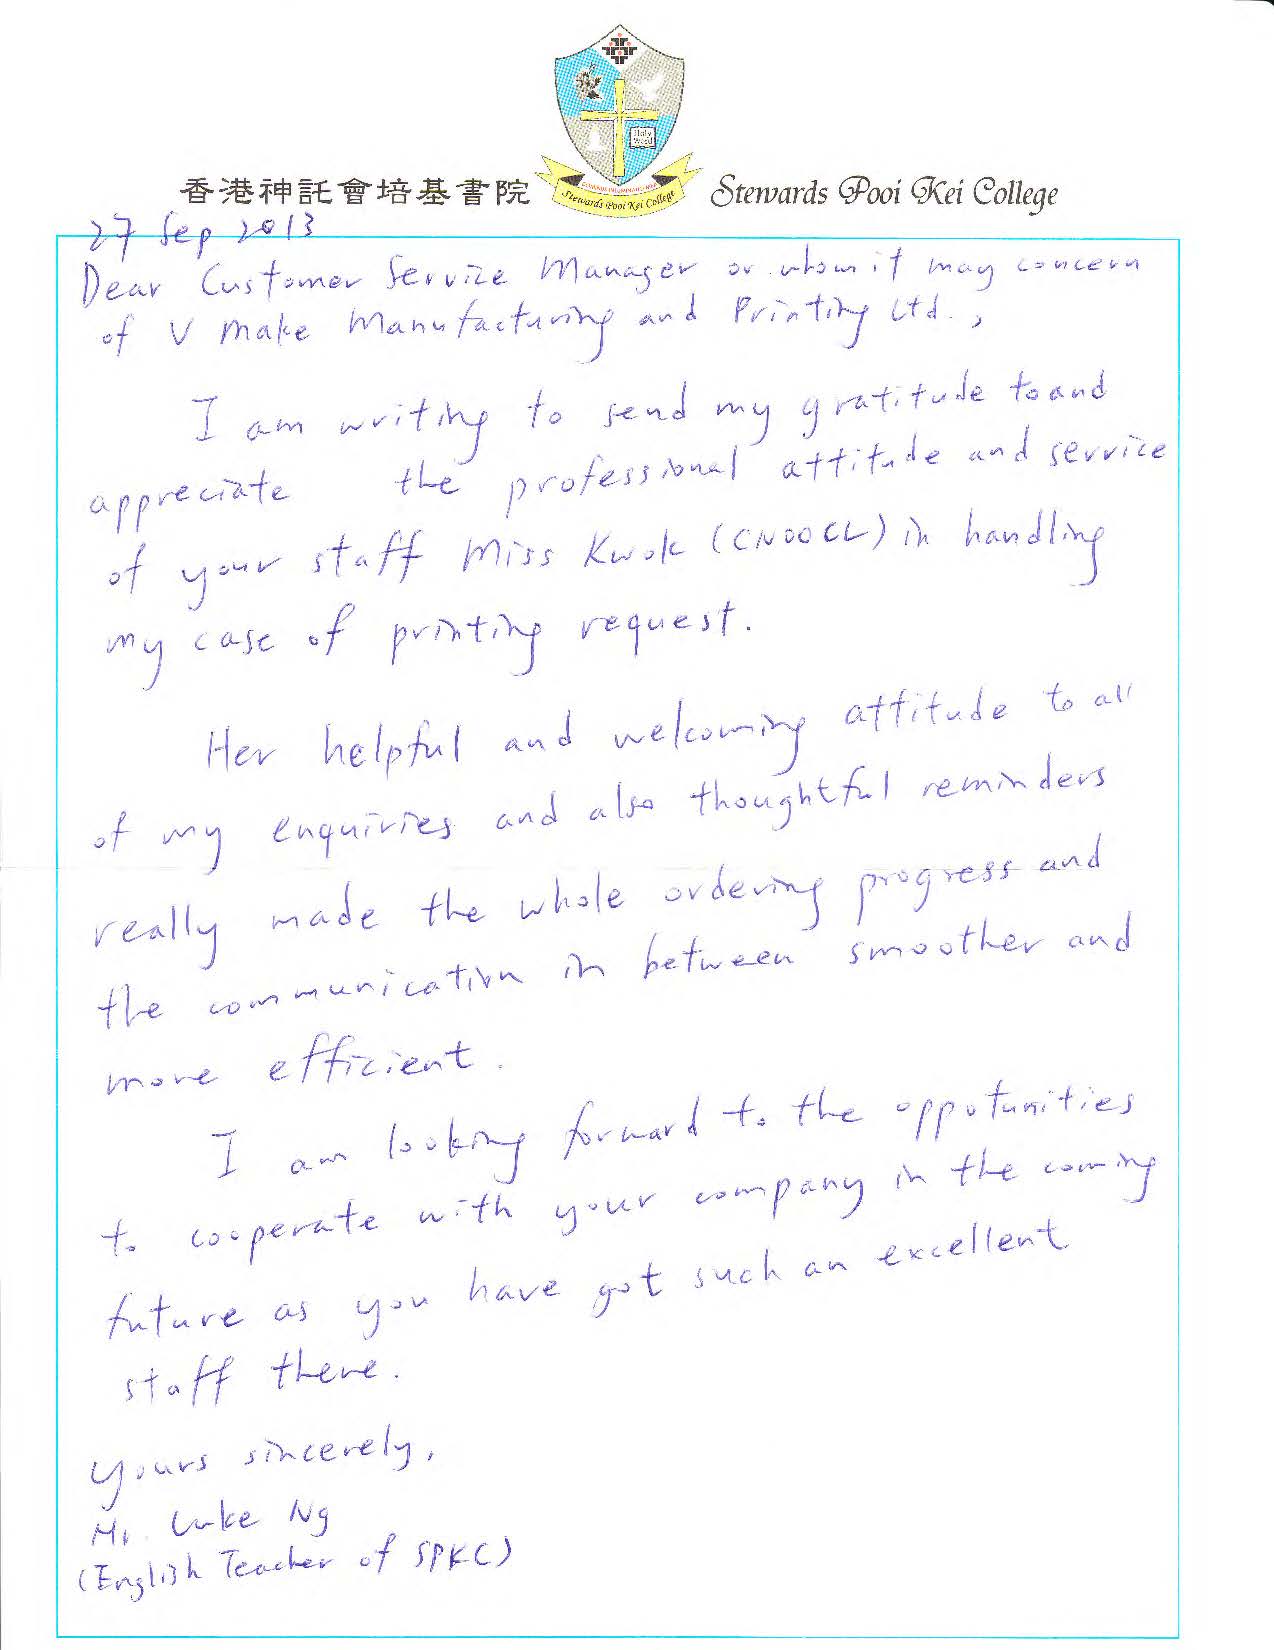 Holy
Word
Stewards Pooi Kei College
香港神託會培基書院
Stewards Pooi Kei College
27 Sep 2013
Dear Customer Service Manager or whom it may concern
of V Make Manufacturing and Printing Ltd.,
I am writing to send my gratitude to and
appreciate the professional attitude and service
of your staff Miss Kwok (CNOOCL) in handling
my case of printing request.
Her helpful and welcoming attitude to all
of my enquiries and also thoughtful reminders
really made the whole ordering progress and
the communication in between smoother and
more efficient.
I am looking forward to the oppotunities
to cooperate with your company in the coming
future as you have got such an excellent
staff there.
Yours sincerely,
Mr. Luke Ng
(English Teacher of SPKC)